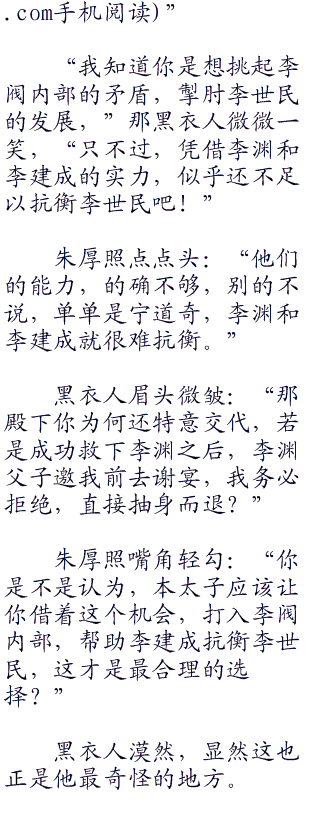 .com手机阅读)”
“我知道你是想挑起李
阀内部的矛盾，掣肘李世民
的发展，”那黑衣人微微一
笑，“只不过，凭借李渊和
李建成的实力，似乎还不足
以抗衡李世民吧！”
朱厚照点点头：“他们
的能力，的确不够，别的不
说，单单是宁道奇，李渊和
李建成就很难抗衡。”
黑衣人眉头微皱：“那
殿下你为何还特意交代，若
是成功救下李渊之后，李渊
父子邀我前去谢宴，我务必
拒绝，直接抽身而退？”
朱厚照嘴角轻勾：“你
是不是认为，本太子应该让
你借着这个机会，打入李阀
内部，帮助李建成抗衡李世
民，这才是最合理的选
择？”
黑衣人漠然，显然这也
正是他最奇怪的地方。